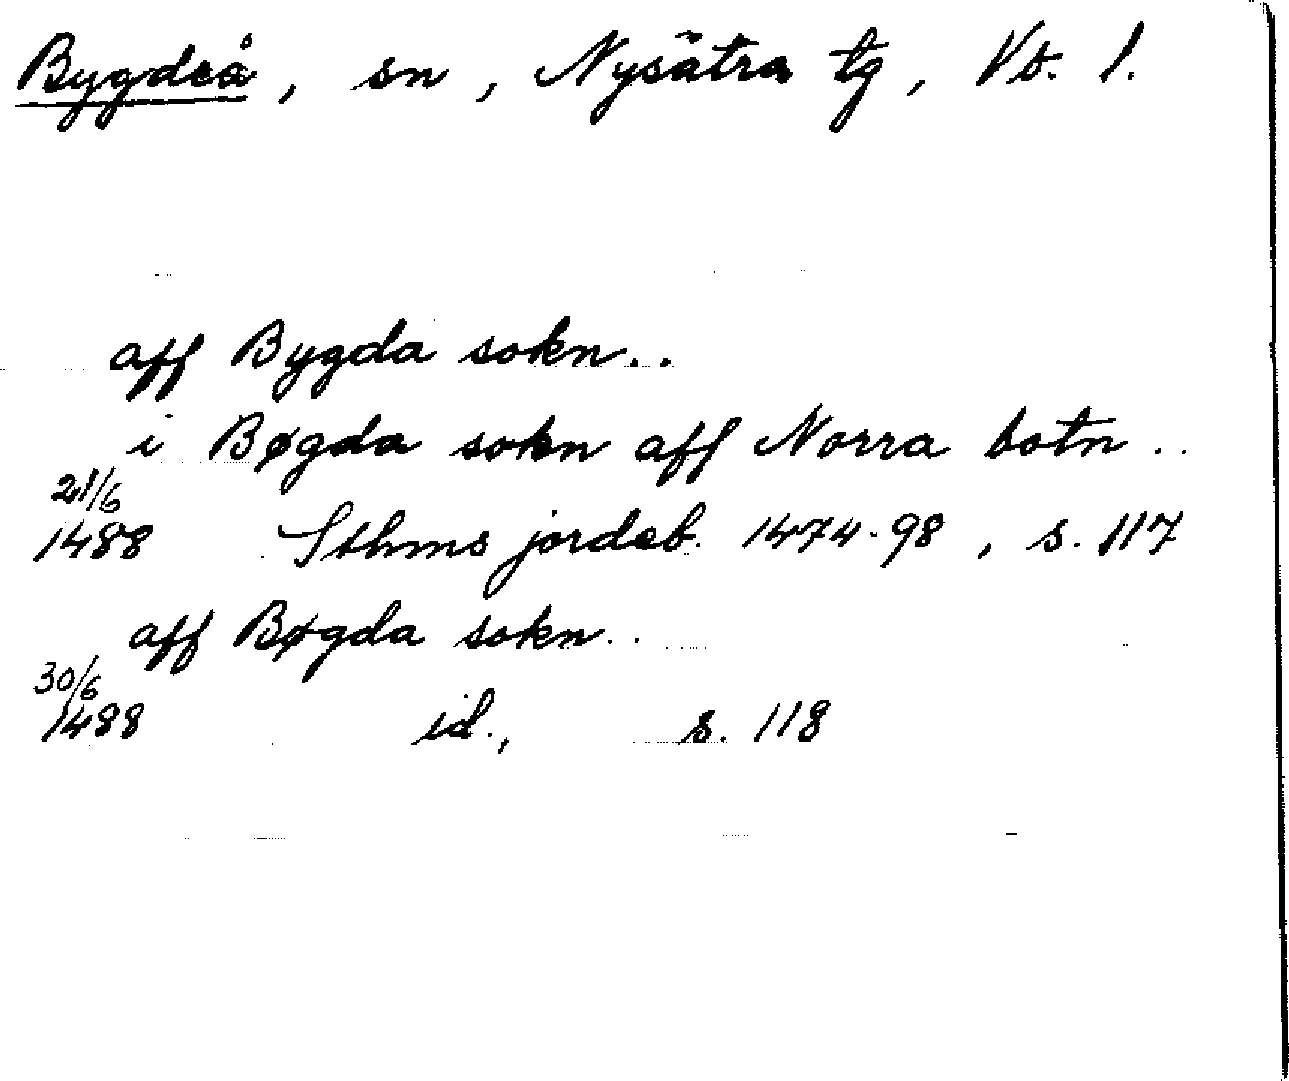 Bygdeå, sn, Nysätra tg, Vb. l.
aff Bygda sokn..
i Bøgda sokn aff Norra botn..
21/6
1488 Sthms jordeb. 1474-98, s. 117
aff Bøgda sokn..
30/6
1488 id., s. 118